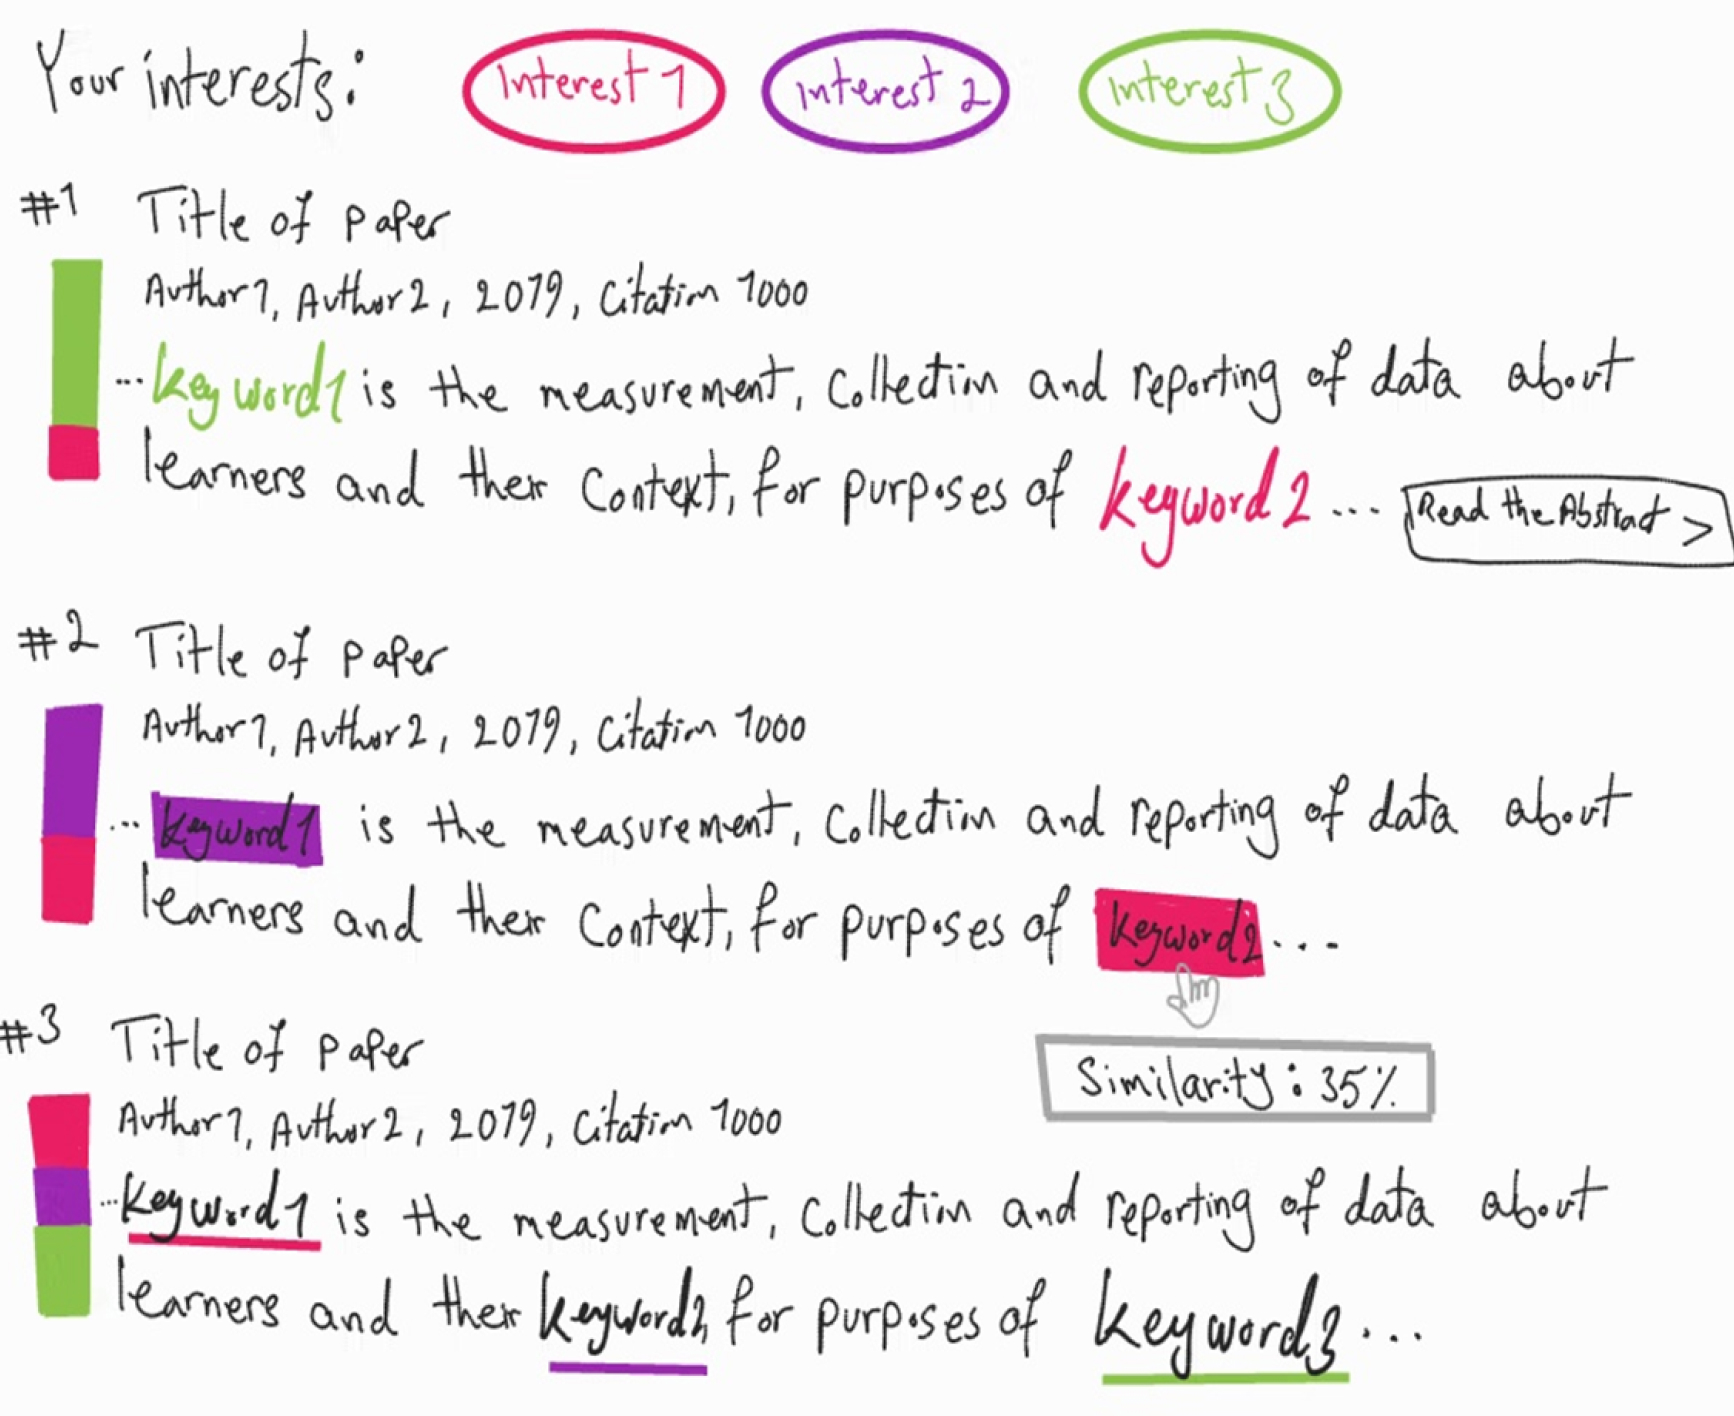 Your interests: Interest 1 Interest 2 Interest 3
#1 Title of paper
Author1, Author2, 2019, Citation 1000
... keyword1 is the measurement, Collection and reporting of data about
learners and their Context, for purposes of keyword2 ... Read the Abstract >
#2 Title of paper
Author1, Author2, 2019, Citation 1000
... keyword1 is the measurement, Collection and reporting of data about
learners and their Context, for purposes of keyword2 ...
#3 Title of paper
Similarity: 35%
Author1, Author2, 2019, Citation 1000
... keyword1 is the measurement, Collection and reporting of data about
learners and their keyword2, for purposes of keyword3 ...